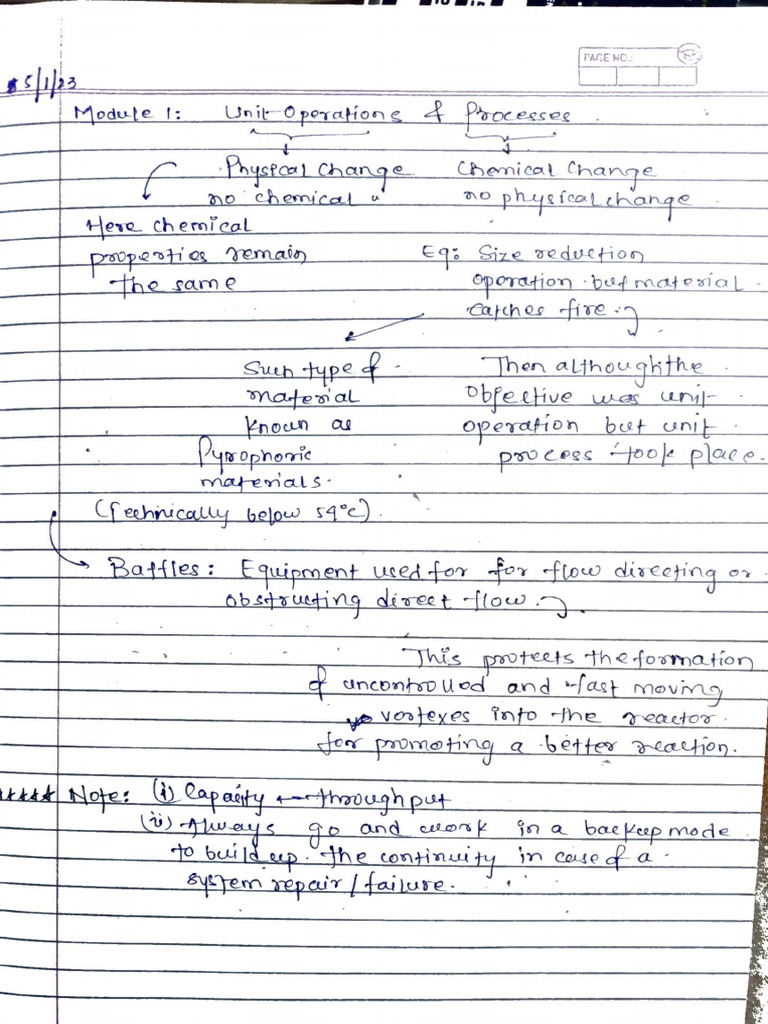 PAGE NO.:
5/1/23
Module 1: Unit Operations & Processes.
Physical Change Chemical Change
no chemical " no physical change
Here chemical
properties remain Eg: Size reduction
the same operation but material
catches fire.
Such type of Then although the
material objective was unit
known as operation but unit
Pyrophoric process took place.
materials.
(Technically below 54°C)
Baffles: Equipment used for for flow directing or
obstructing direct flow.
This protects the formation
of uncontrolled and fast moving
vortexes into the reactor
for promoting a better reaction.
***** Note: (i) Capacity ← throughput
(ii) Always go and work in a backup mode
to build up the continuity in case of a
system repair/failure.